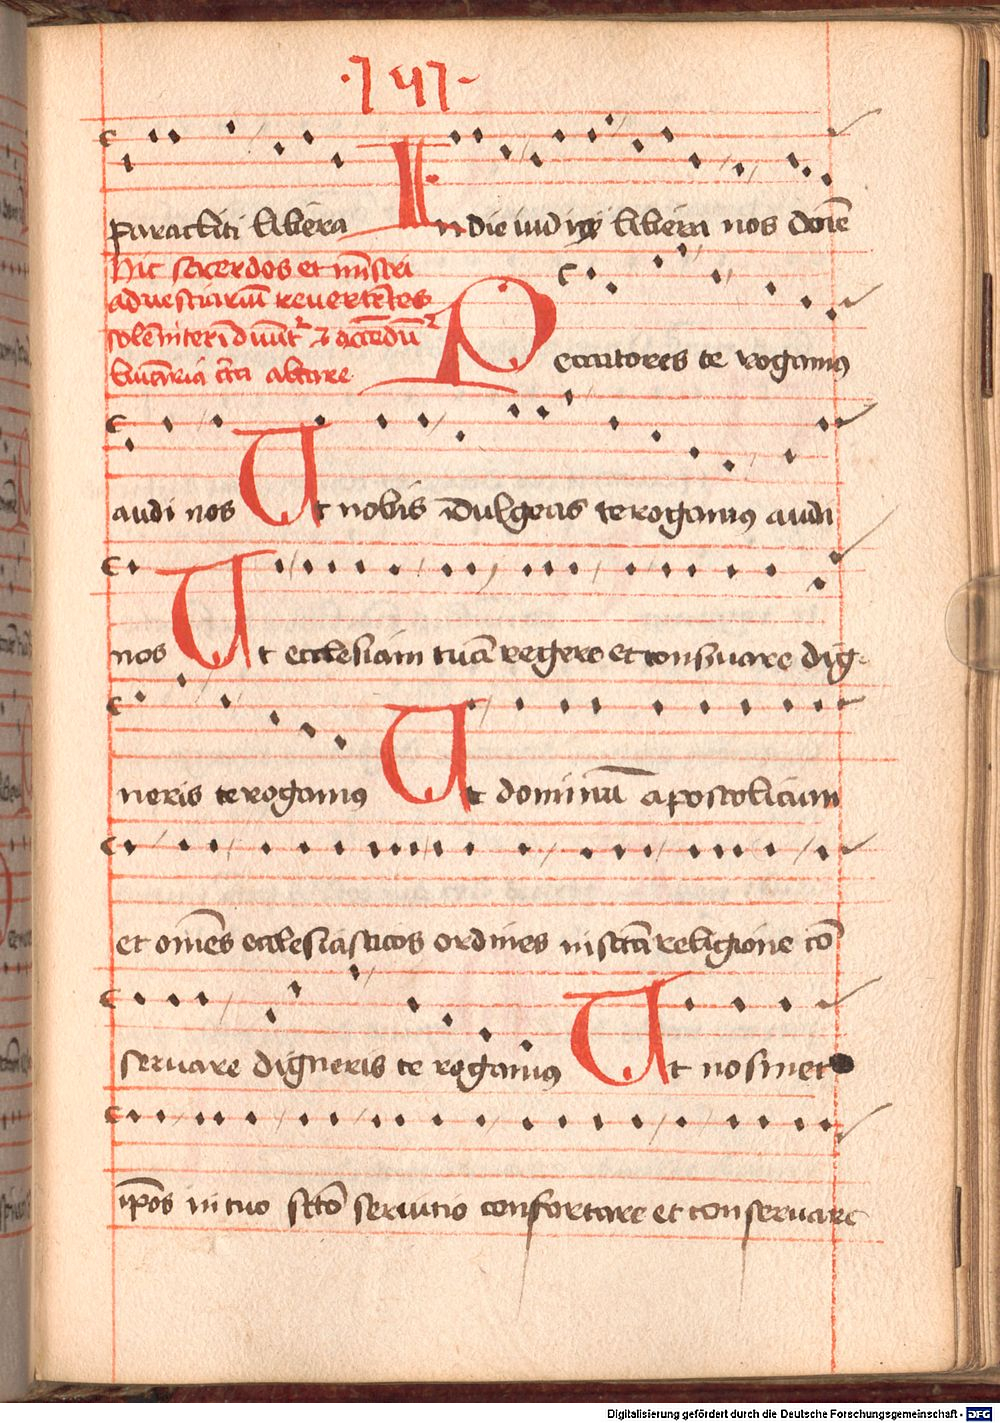 ·141·
paracliti libera In die iudicij libera nos dn̄e
Hic sacerdos et mīstri
ad vestiariū revertētes
solēniter īduūtr et accēdūt
lūnaria ad altare
Peccatores te rogamus
audi nos Ut nobis īdulgeas te rogamus audi
nos Ut ecclesiam tuā regere et conseruare dig-
neris te rogamus Ut dominū apostolicum
et om̄es ecclesiasticos ordines in sctā religione cō
seruare digneris te rogamus Ut nosmet
ip̄os in tuo sctō seruitio confortare et conseruare
Digitalisierung gefördert durch die Deutsche Forschungsgemeinschaft - DFG